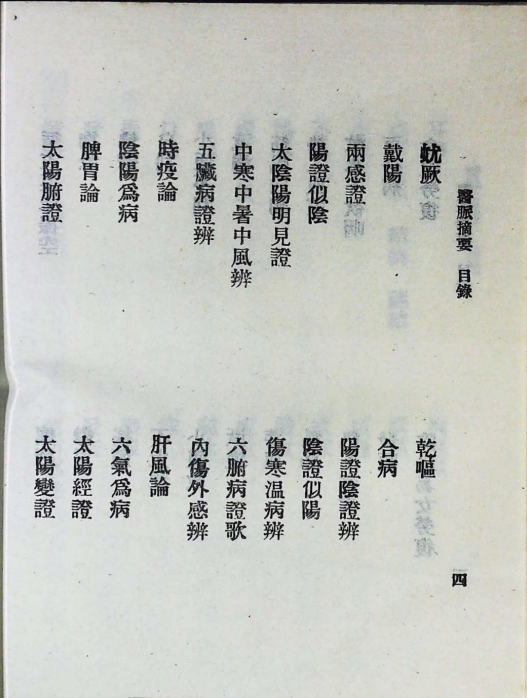 醫脈摘要 目錄 四
蚘厥 乾嘔
戴陽 合病
兩感證 陽證陰證辨
陽證似陰 陰證似陽
太陰陽明見證 傷寒溫病辨
中寒中暑中風辨 六腑病證歌
五臟病證辨 內傷外感辨
時疫論 肝風論
陰陽爲病 六氣爲病
脾胃論 太陽經證
太陽腑證 太陽變證